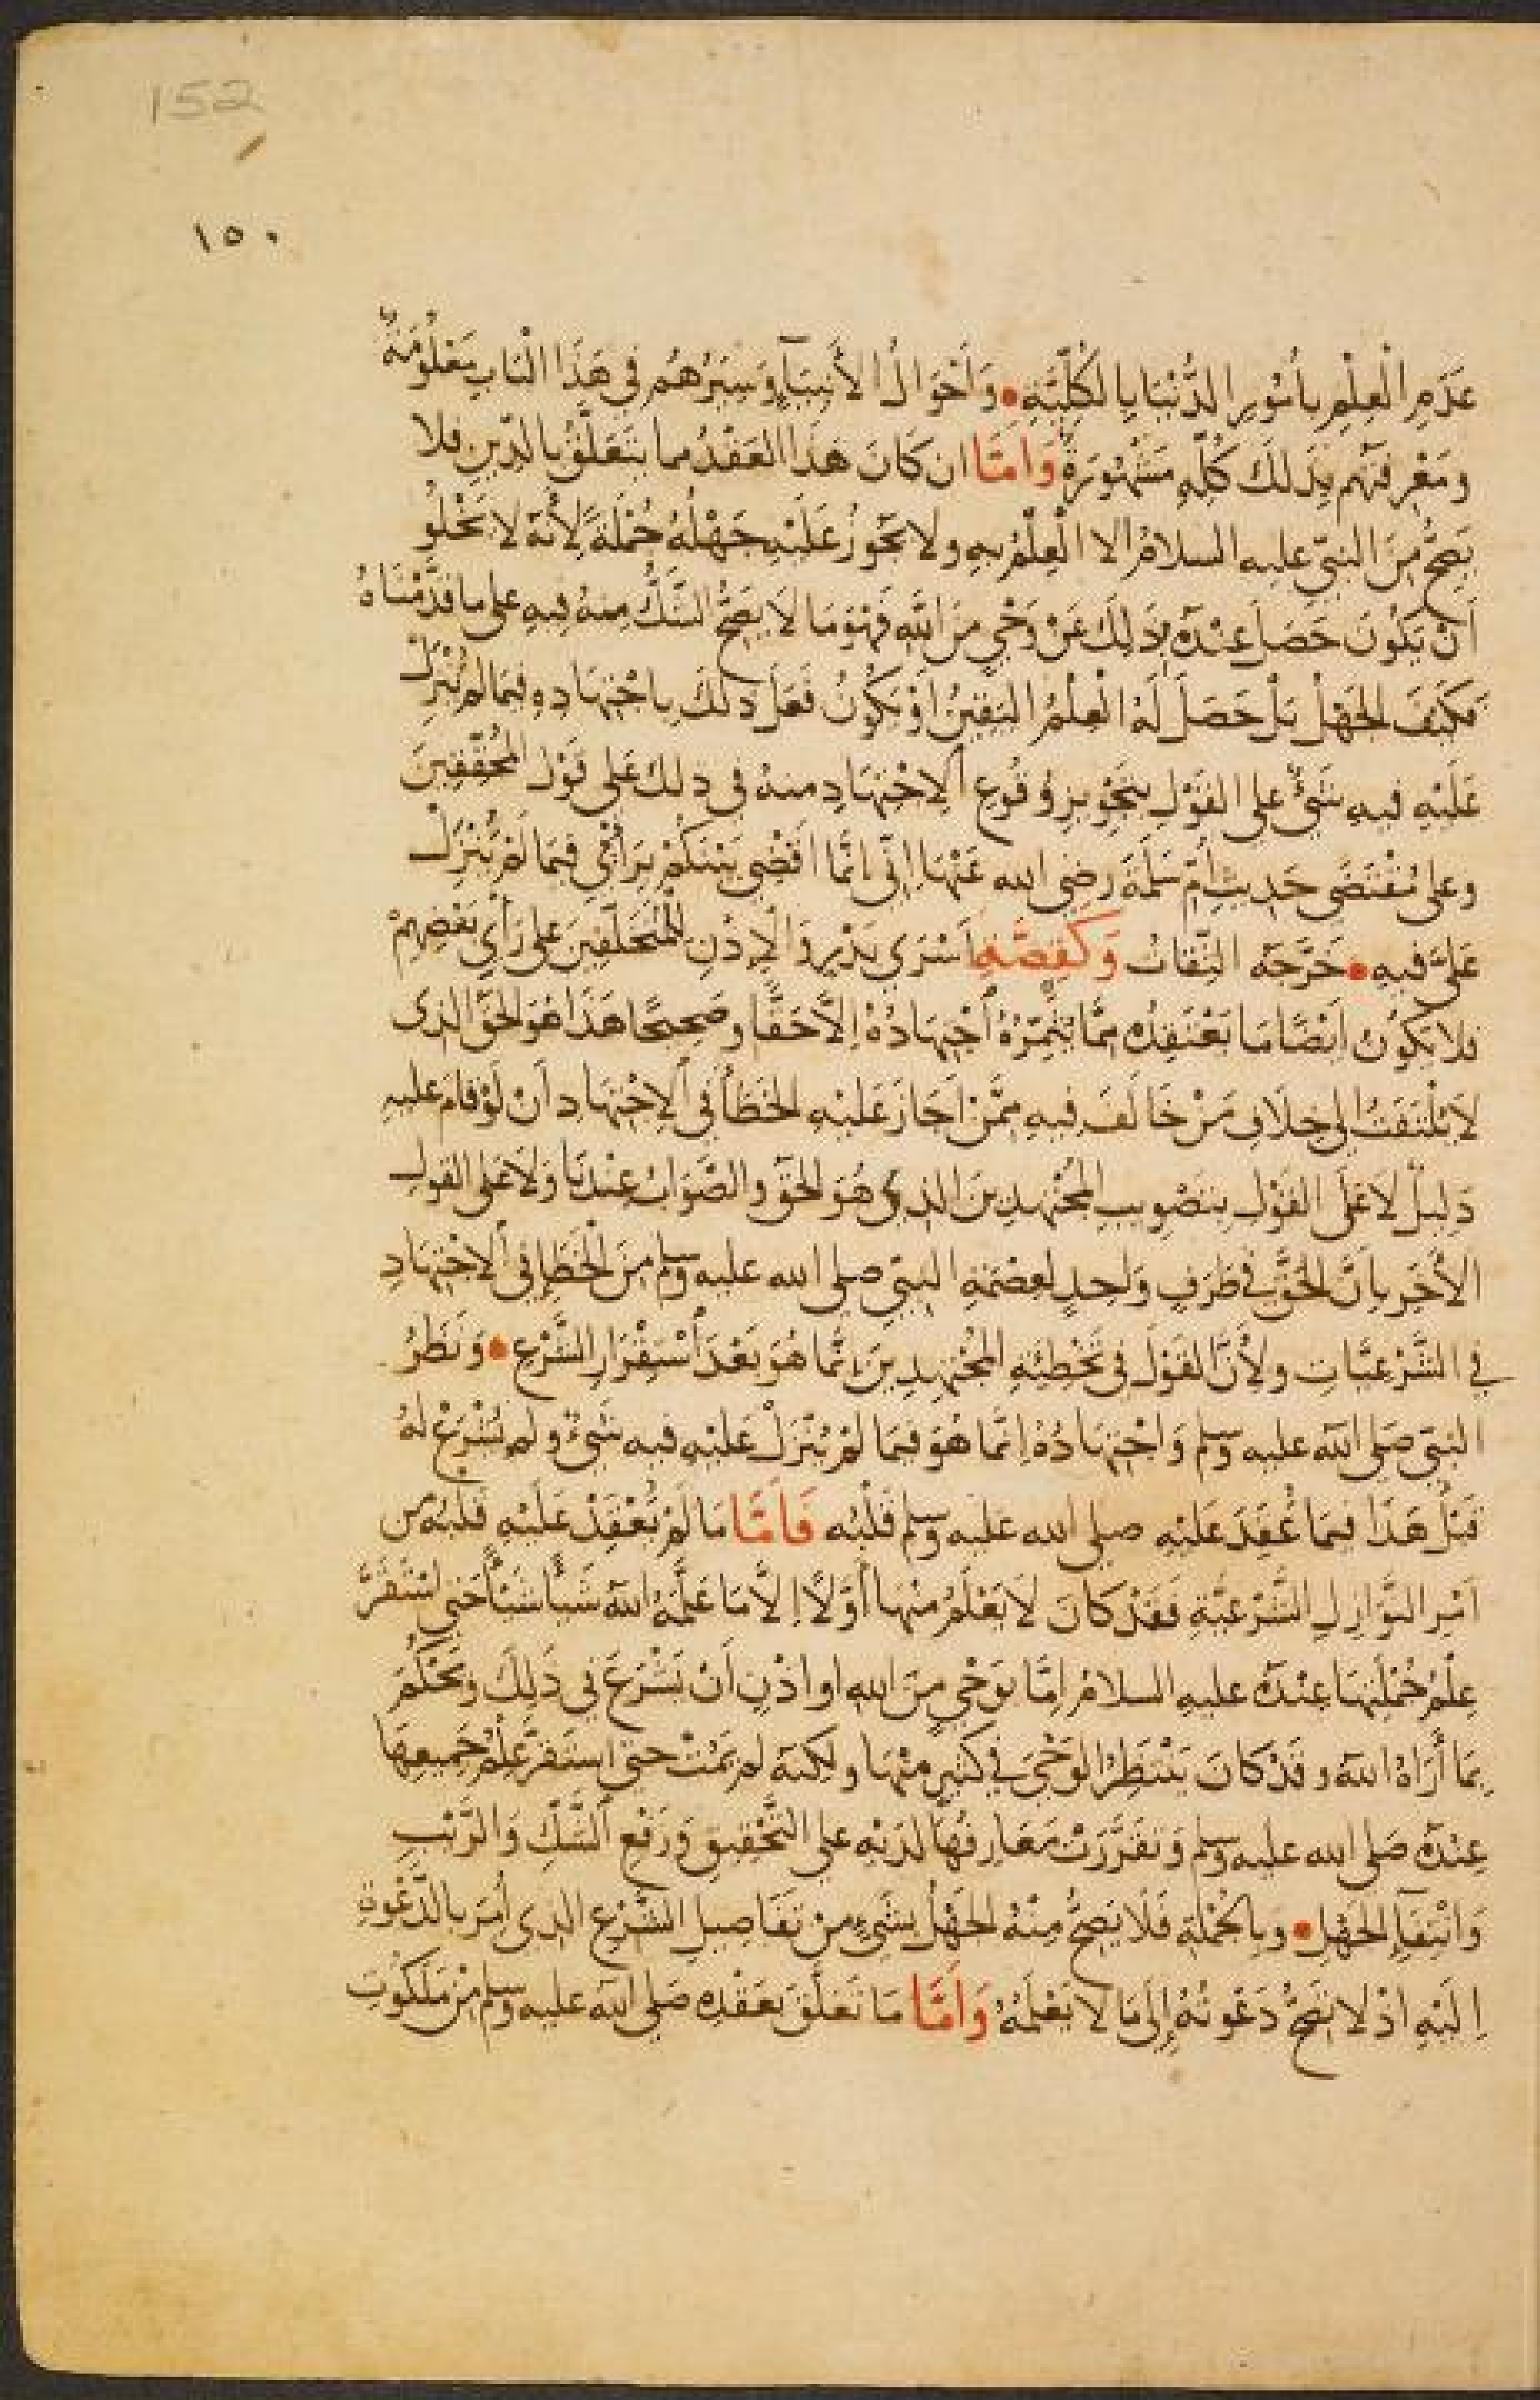 152
١٥٠
عَدَمِ الْعِلْمِ بِأُمُورِ الدُّنْيَا بِالْكُلِّيَّةِ • وَأَحْوَالُ الأَنْبِيَآءِ وَسِيَرُهُمْ فِي هَذَا الْبَابِ مَعْلُومَةٌ
وَمَعْرِفَتُهُم بِذَلِكَ كُلِّهِ مَشْهُورَةٌ وَأَمَّا ان كَانَ هَذَا العَقْدُ مما يَتَعَلَّقُ بِالدِّينِ فلا
يَصِحُّ مِنَ النبيّ عليه السلامُ إلا الْعِلْمُ بِهِ ولا يَجُوزُ عَلَيْهِ جَهْلُهُ جُمْلَةً لِأَنَّهُ لا يَخْلُو
أَنْ يَكُونَ حَصَلَ عِنْدَهُ ذَلِكَ عَنْ وَحْيٍ مِنَ اللهِ فَهُوَ مَا لَا يَصِحُّ الشَّكُّ مِنهُ فِيهِ على ما قَدَّمْنَاهُ
فَكَيْفَ الجَهْلُ بَلْ حَصَلَ لَهُ الْعِلْمُ اليَقِينُ أَوْ يَكُونُ فَعَلَ ذلكَ بِاجْتِهَادِهِ فِيمَا لم يُنْزَلْ
عَلَيْهِ فيهِ شَيْءٌ على القَوْلِ بِتَجْوِيزِ وُقُوعِ الِاجْتِهَادِ منهُ في ذلكَ عَلى قَوْلِ المُحَقِّقِينَ
وعلى مُقْتَضَى حَدِيثِ أُمِّ سَلَمَةَ رضي الله عَنْهَا إِنِّي إِنَّمَا أَقْضِي بَيْنَكُمْ بِرَأْيِي فِيمَا لَمْ يُنْزَلْ
عَلَيَّ فِيهِ • خَرَّجَهُ الثِّقَاتُ وَكَقِصَّةِ أَسْرَى بَدْرٍ وَالْإِذْنِ لِلْمُتَخَلِّفِينَ عَلى رَأْيِ بَعْضِهِمْ
فلا يَكُونُ أَيْضًا مَا يَعْتَقِدُه مِمَّا يُثْمِرُهُ اجْتِهَادُهُ إِلاَّ حَقًّا وصَحِيحًا هَذَا هُوَ الحَقُّ الذي
لَا يُلْتَفَتُ إِلى خِلَافِ مَنْ خَالَفَ فِيهِ مِمَّنْ أَجَازَ عَلَيْهِ الخَطَأَ في الِاجْتِهَادِ أَنْ لَوْ قَامَ عليهِ
دَلِيلٌ لَا عَلَى القَوْلِ بِتَصْوِيبِ المُجْتَهِدِينَ الذي هُوَ الحَقُّ والصَّوَابُ عِنْدَنَا وَلَا عَلى القولِ
الأَخَرِ بِأَنَّ الحَقَّ فِي طَرَفٍ وَاحِدٍ لِعِصْمَةِ النبيّ صلى الله عليه وسلم مِنَ الْخَطَإِ فِي الاجْتِهَادِ
فِي الشَّرْعِيَّاتِ ولأَنَّ القَوْلَ فِي تَخْطِئَةِ المُجْتَهِدِينَ إِنَّمَا هُوَ بَعْدَ اسْتِقْرَارِ الشَّرْعِ • وَنَظَرُ
النبيّ صَلى الله عليه وسلم وَاجْتِهَادُهُ إِنَّمَا هُوَ فِيمَا لَمْ يُنْزَلْ عَلَيْهِ فيه شَيْءٌ ولم يُشْرَعْ لَهُ
قَبْلُ هَذَا فيمَا عُقِدَ عَلَيْهِ صلى الله عليه وسلم قَلْبُه فَأَمَّا مَا لَمْ يُعْقَدْ عَلَيْهِ قَلْبُه من
أَمْرِ النَّوَازِلِ الشَّرْعِيَّةِ فَقَدْ كَانَ لَا يَعْلَمُ مِنْهَا أَوَّلًا إِلَّا مَا عَلَّمَهُ اللهُ شَيْأً شَيْأً حتى اسْتَقَرَّ
عِلْمُ جُمْلَتِهَا عِنْدَهُ عليهِ السلامُ إِمَّا بِوَحْيٍ مِنَ اللهِ أو إِذْنٍ أَنْ يَشْرَعَ فِي ذَلِكَ وَيَحْكُمَ
بِمَا أَرَاهُ اللهُ وقَدْ كَانَ يَنْتَظِرُ الوَحْيَ فِي كَثِيرٍ مِنْهَا ولَكِنَّهُ لم يَمُتْ حتى اسْتَقَرَّ عِلْمُ جَمِيعِهَا
عِنْدَهُ صَلى الله عليه وسلم وَتَقَرَّرَتْ مَعَارِفُهَا لَدَيْهِ على التَّحْقِيقِ وَرَفْعِ الشَّكِّ وَالرَّيْبِ
وَانْتِفَآءِ الجَهْلِ • وبِالجُمْلَةِ فَلَا يَصِحُّ مِنْهُ الجَهْلُ بِشَيْءٍ مِنْ تَفَاصِيلِ الشَّرْعِ الذي أُمِرَ بِالدَّعْوَةِ
إِلَيْهِ إِذْ لا تَصِحُّ دَعْوَتُهُ إِلَى مَا لا يَعْلَمُهُ وَأَمَّا مَا تَعَلَّقَ بِعَقْدِهِ صَلى الله عليه وسلم مِنْ مَلَكُوتِ